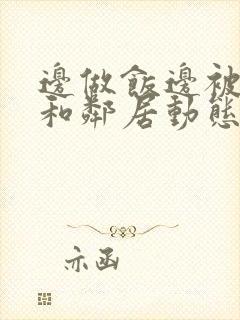 邊做飯邊被
和鄰居動態
示函